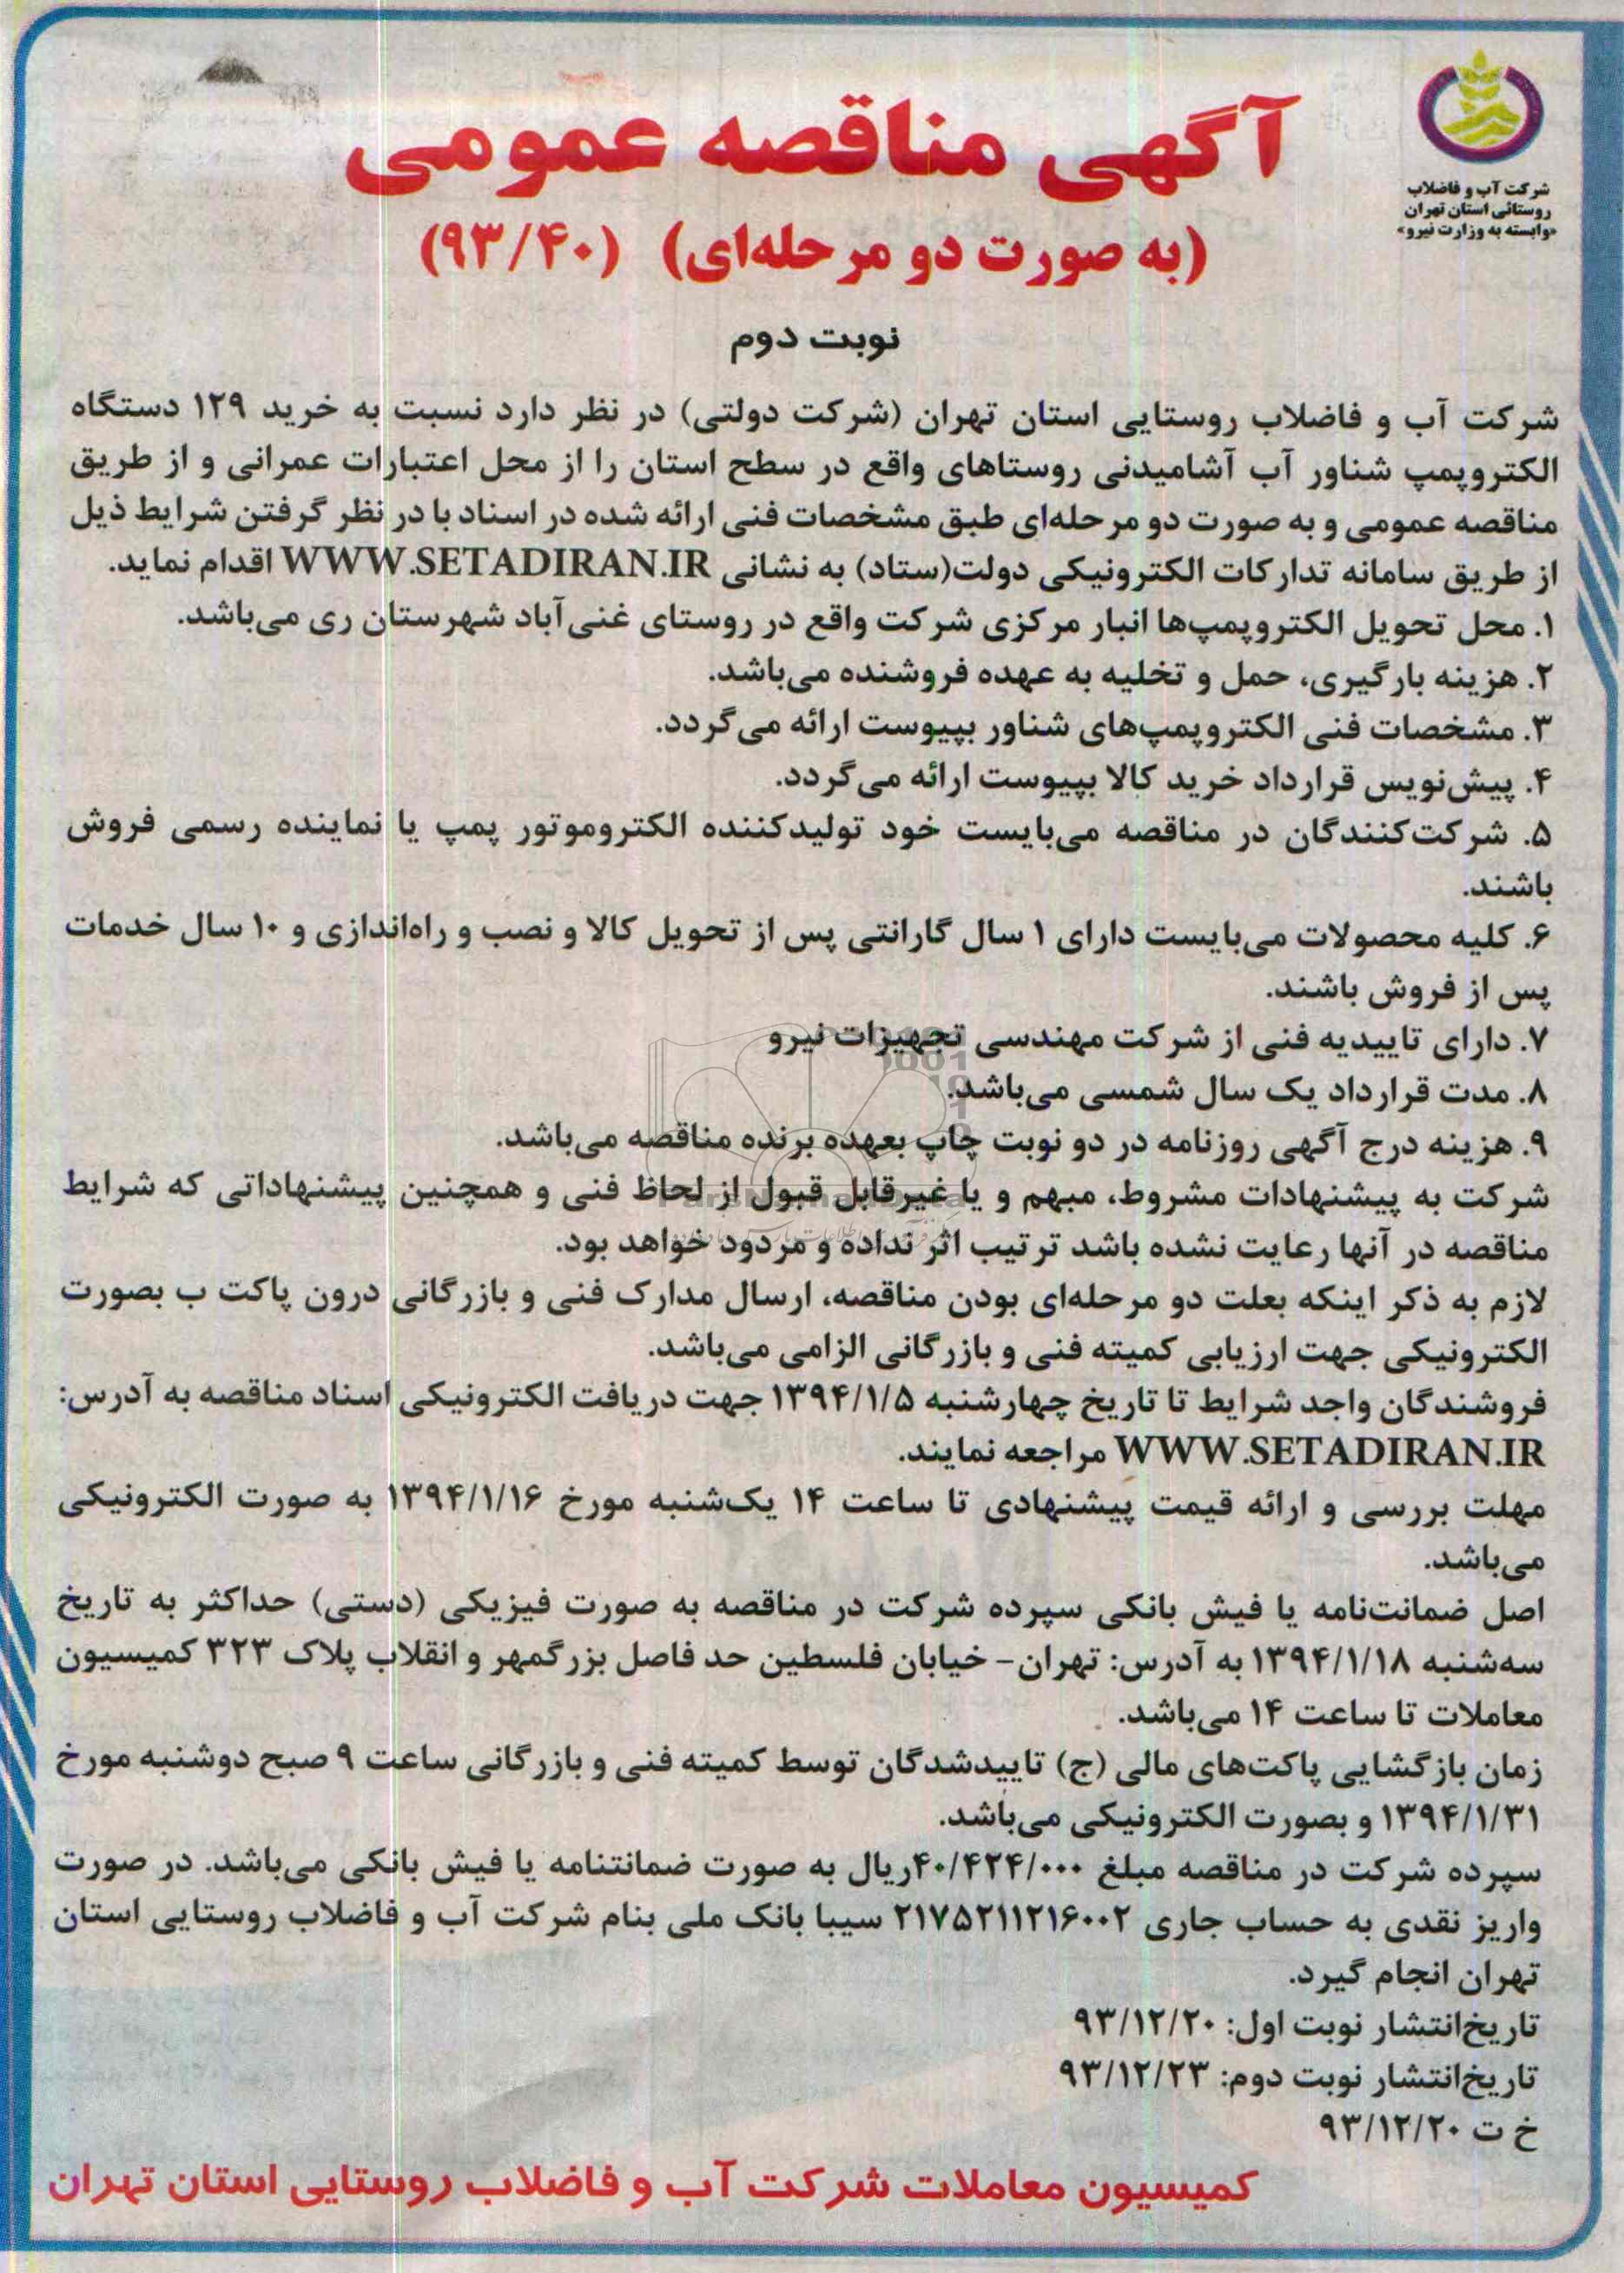 شرکت آب و فاضلاب
روستائی استان تهران
«وابسته به وزارت نیرو»
آگهی مناقصه عمومی
(به صورت دو مرحله‌ای) (۹۳/۴۰)
نوبت دوم
شرکت آب و فاضلاب روستایی استان تهران (شرکت دولتی) در نظر دارد نسبت به خرید ۱۲۹ دستگاه
الکتروپمپ شناور آب آشامیدنی روستاهای واقع در سطح استان را از محل اعتبارات عمرانی و از طریق
مناقصه عمومی و به صورت دو مرحله‌ای طبق مشخصات فنی ارائه شده در اسناد با در نظر گرفتن شرایط ذیل
از طریق سامانه تدارکات الکترونیکی دولت(ستاد) به نشانی WWW.SETADIRAN.IR اقدام نماید.
۱. محل تحویل الکتروپمپ‌ها انبار مرکزی شرکت واقع در روستای غنی‌آباد شهرستان ری می‌باشد.
۲. هزینه بارگیری، حمل و تخلیه به عهده فروشنده می‌باشد.
۳. مشخصات فنی الکتروپمپ‌های شناور بپیوست ارائه می‌گردد.
۴. پیش‌نویس قرارداد خرید کالا بپیوست ارائه می‌گردد.
۵. شرکت‌کنندگان در مناقصه می‌بایست خود تولیدکننده الکتروموتور پمپ یا نماینده رسمی فروش
باشند.
۶. کلیه محصولات می‌بایست دارای ۱ سال گارانتی پس از تحویل کالا و نصب و راه‌اندازی و ۱۰ سال خدمات
پس از فروش باشند.
۷. دارای تاییدیه فنی از شرکت مهندسی تجهیزات نیرو
۸. مدت قرارداد یک سال شمسی می‌باشد.
۹. هزینه درج آگهی روزنامه در دو نوبت چاپ بعهده برنده مناقصه می‌باشد.
شرکت به پیشنهادات مشروط، مبهم و یا غیرقابل قبول از لحاظ فنی و همچنین پیشنهاداتی که شرایط
مناقصه در آنها رعایت نشده باشد ترتیب اثر نداده و مردود خواهد بود.
لازم به ذکر اینکه بعلت دو مرحله‌ای بودن مناقصه، ارسال مدارک فنی و بازرگانی درون پاکت ب بصورت
الکترونیکی جهت ارزیابی کمیته فنی و بازرگانی الزامی می‌باشد.
فروشندگان واجد شرایط تا تاریخ چهارشنبه ۱۳۹۴/۱/۵ جهت دریافت الکترونیکی اسناد مناقصه به آدرس:
WWW.SETADIRAN.IR مراجعه نمایند.
مهلت بررسی و ارائه قیمت پیشنهادی تا ساعت ۱۴ یک‌شنبه مورخ ۱۳۹۴/۱/۱۶ به صورت الکترونیکی
می‌باشد.
اصل ضمانت‌نامه یا فیش بانکی سپرده شرکت در مناقصه به صورت فیزیکی (دستی) حداکثر به تاریخ
سه‌شنبه ۱۳۹۴/۱/۱۸ به آدرس: تهران- خیابان فلسطین حد فاصل بزرگمهر و انقلاب پلاک ۳۲۳ کمیسیون
معاملات تا ساعت ۱۴ می‌باشد.
زمان بازگشایی پاکت‌های مالی (ج) تاییدشدگان توسط کمیته فنی و بازرگانی ساعت ۹ صبح دوشنبه مورخ
۱۳۹۴/۱/۳۱ و بصورت الکترونیکی می‌باشد.
سپرده شرکت در مناقصه مبلغ ۴۰/۴۲۴/۰۰۰ریال به صورت ضمانتنامه یا فیش بانکی می‌باشد. در صورت
واریز نقدی به حساب جاری ۲۱۷۵۲۱۱۲۱۶۰۰۲ سیبا بانک ملی بنام شرکت آب و فاضلاب روستایی استان
تهران انجام گیرد.
تاریخ‌انتشار نوبت اول: ۹۳/۱۲/۲۰
تاریخ‌انتشار نوبت دوم: ۹۳/۱۲/۲۳
خ ت ۹۳/۱۲/۲۰
کمیسیون معاملات شرکت آب و فاضلاب روستایی استان تهران